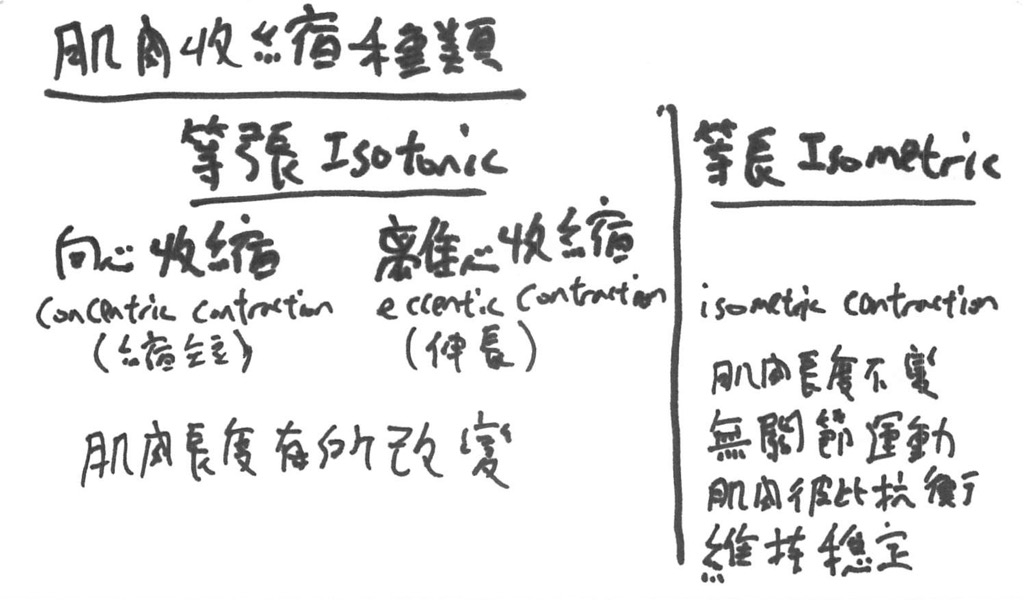 肌肉收縮種類
等張 Isotonic
向心收縮
concentric contraction
(縮短)
離心收縮
eccentic contraction
(伸長)
肌肉長度有所改變
等長 Isometric
isometric contraction
肌肉長度不變
無關節運動
肌肉彼比抗衡
維持穩定